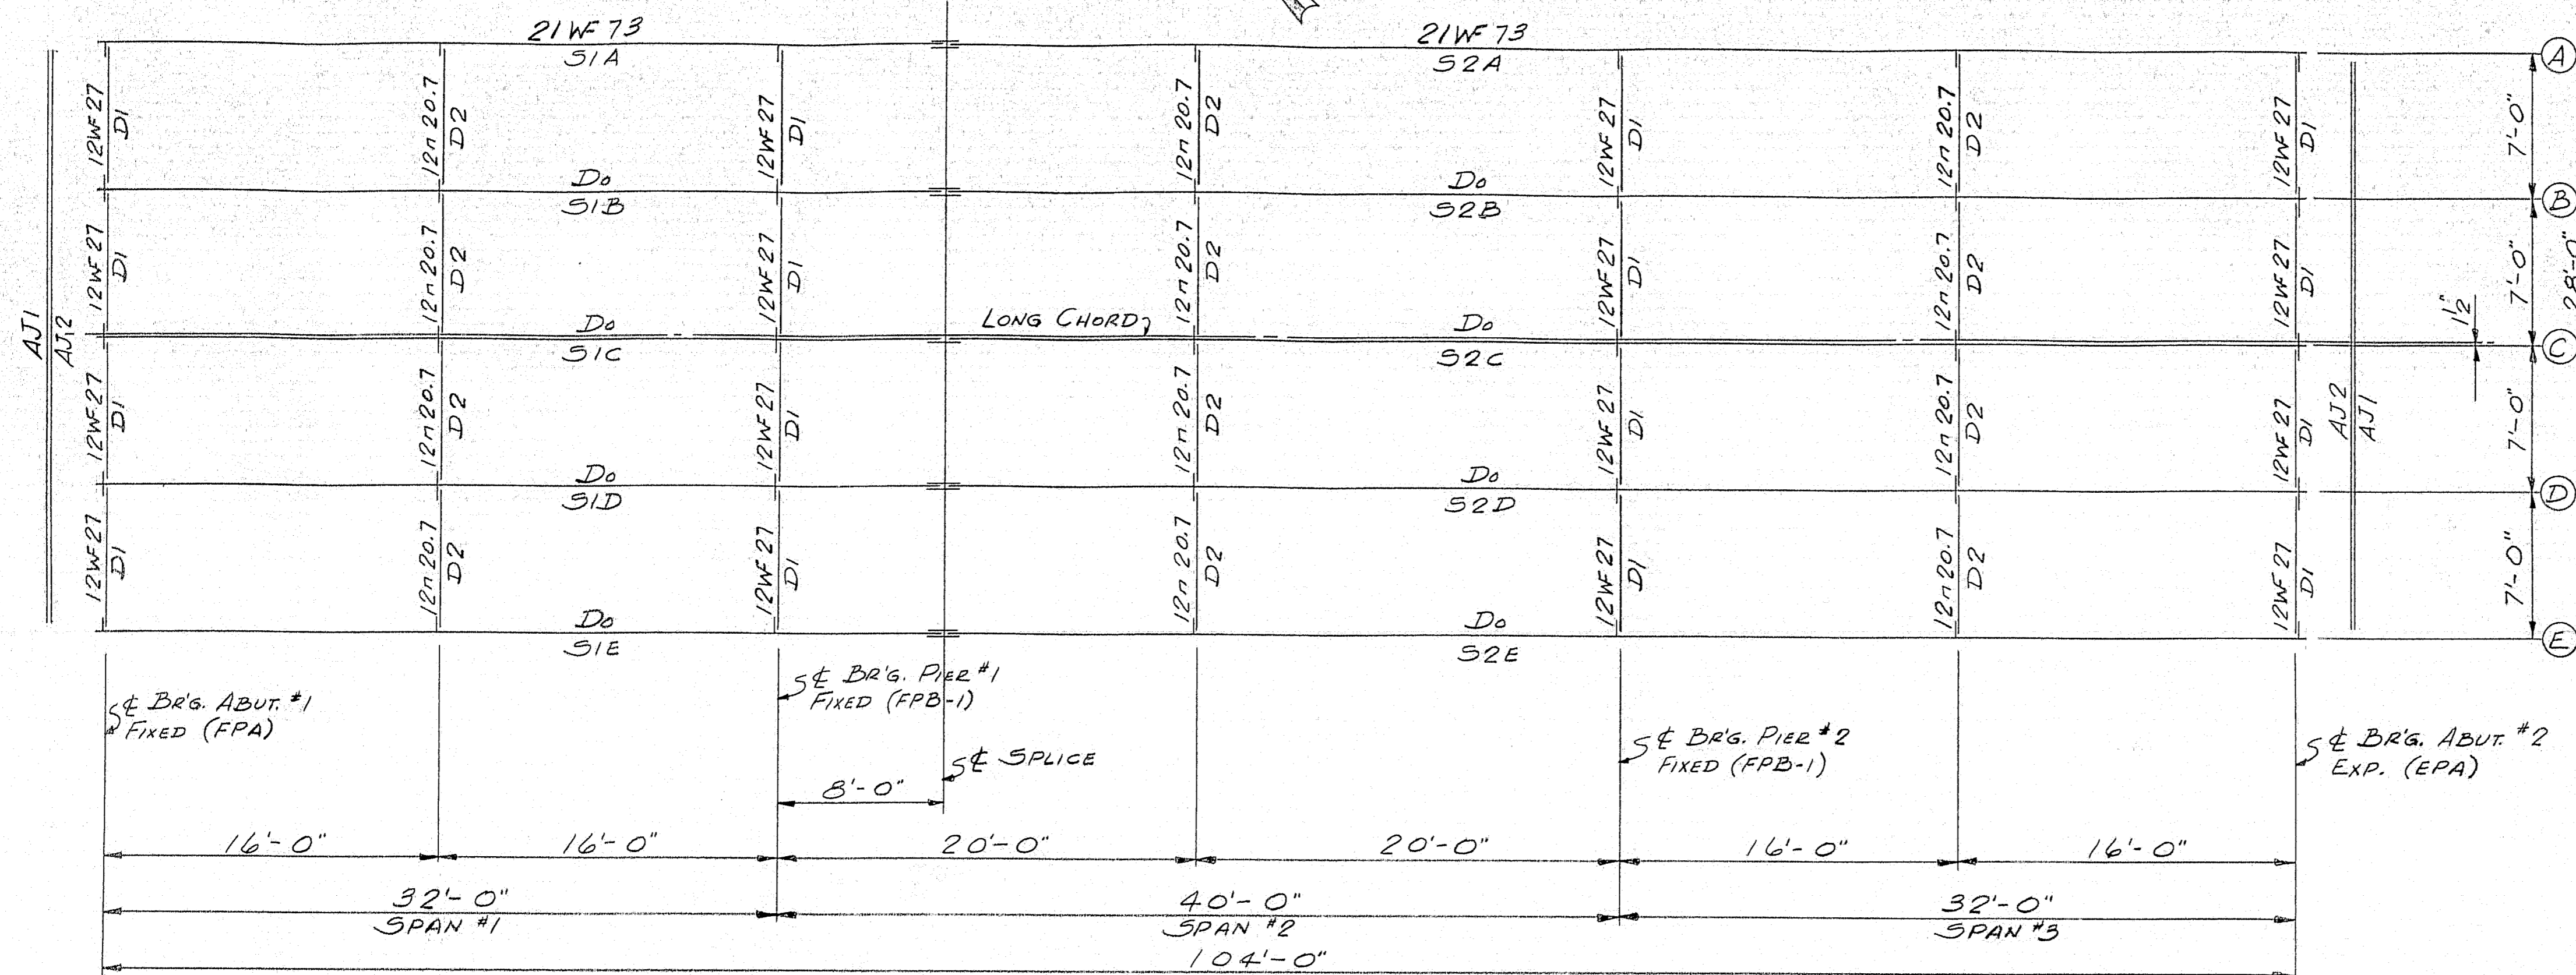 21 WF 73
S1A
21 WF 73
S2A
A
12WF27
D1
12n 20.7
D2
12WF27
D1
12n 20.7
D2
12WF27
D1
12n 20.7
D2
12WF27
D1
7'-0"
Do
S1B
Do
S2B
B
12WF27
D1
12n 20.7
D2
12WF27
D1
12n 20.7
D2
12WF27
D1
12n 20.7
D2
12WF27
D1
7'-0"
28'-0"
1½"
AJ1
AJ2
Do
S1C
LONG CHORD
Do
S2C
C
12WF27
D1
12n 20.7
D2
12WF27
D1
12n 20.7
D2
12WF27
D1
12n 20.7
D2
12WF27
D1
AJ2
AJ1
7'-0"
Do
S1D
Do
S2D
D
12WF27
D1
12n 20.7
D2
12WF27
D1
12n 20.7
D2
12WF27
D1
12n 20.7
D2
12WF27
D1
7'-0"
Do
S1E
Do
S2E
E
℄ BR'G. ABUT. #1
FIXED (FPA)
℄ BR'G. PIER #1
FIXED (FPB-1)
℄ SPLICE
8'-0"
℄ BR'G. PIER #2
FIXED (FPB-1)
℄ BR'G. ABUT. #2
EXP. (EPA)
16'-0"
16'-0"
20'-0"
20'-0"
16'-0"
16'-0"
32'-0"
SPAN #1
40'-0"
SPAN #2
32'-0"
SPAN #3
104'-0"